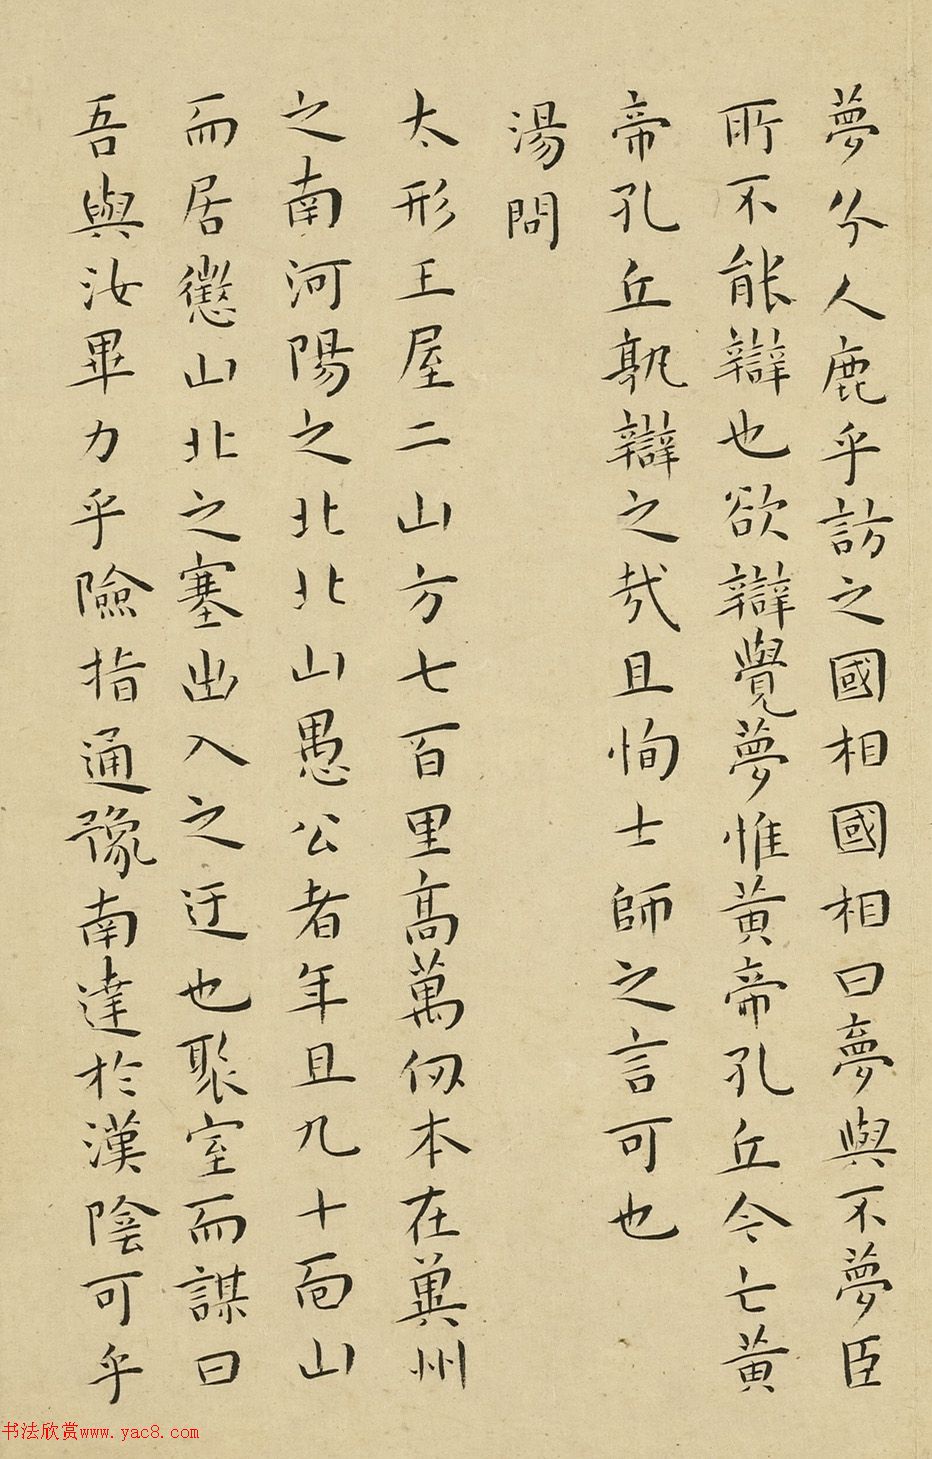 夢分人鹿乎訪之國相國相曰夢與不夢臣
所不能辯也欲辯覺夢惟黃帝孔丘今亡黃
帝孔丘孰辯之哉且恂士師之言可也
湯問
太形王屋二山方七百里高萬仞本在兾州
之南河陽之北北山愚公者年且九十面山
而居懲山北之塞出入之迂也聚室而謀曰
吾與汝畢力平險指通豫南達於漢陰可乎
书法欣赏www.yac8.com